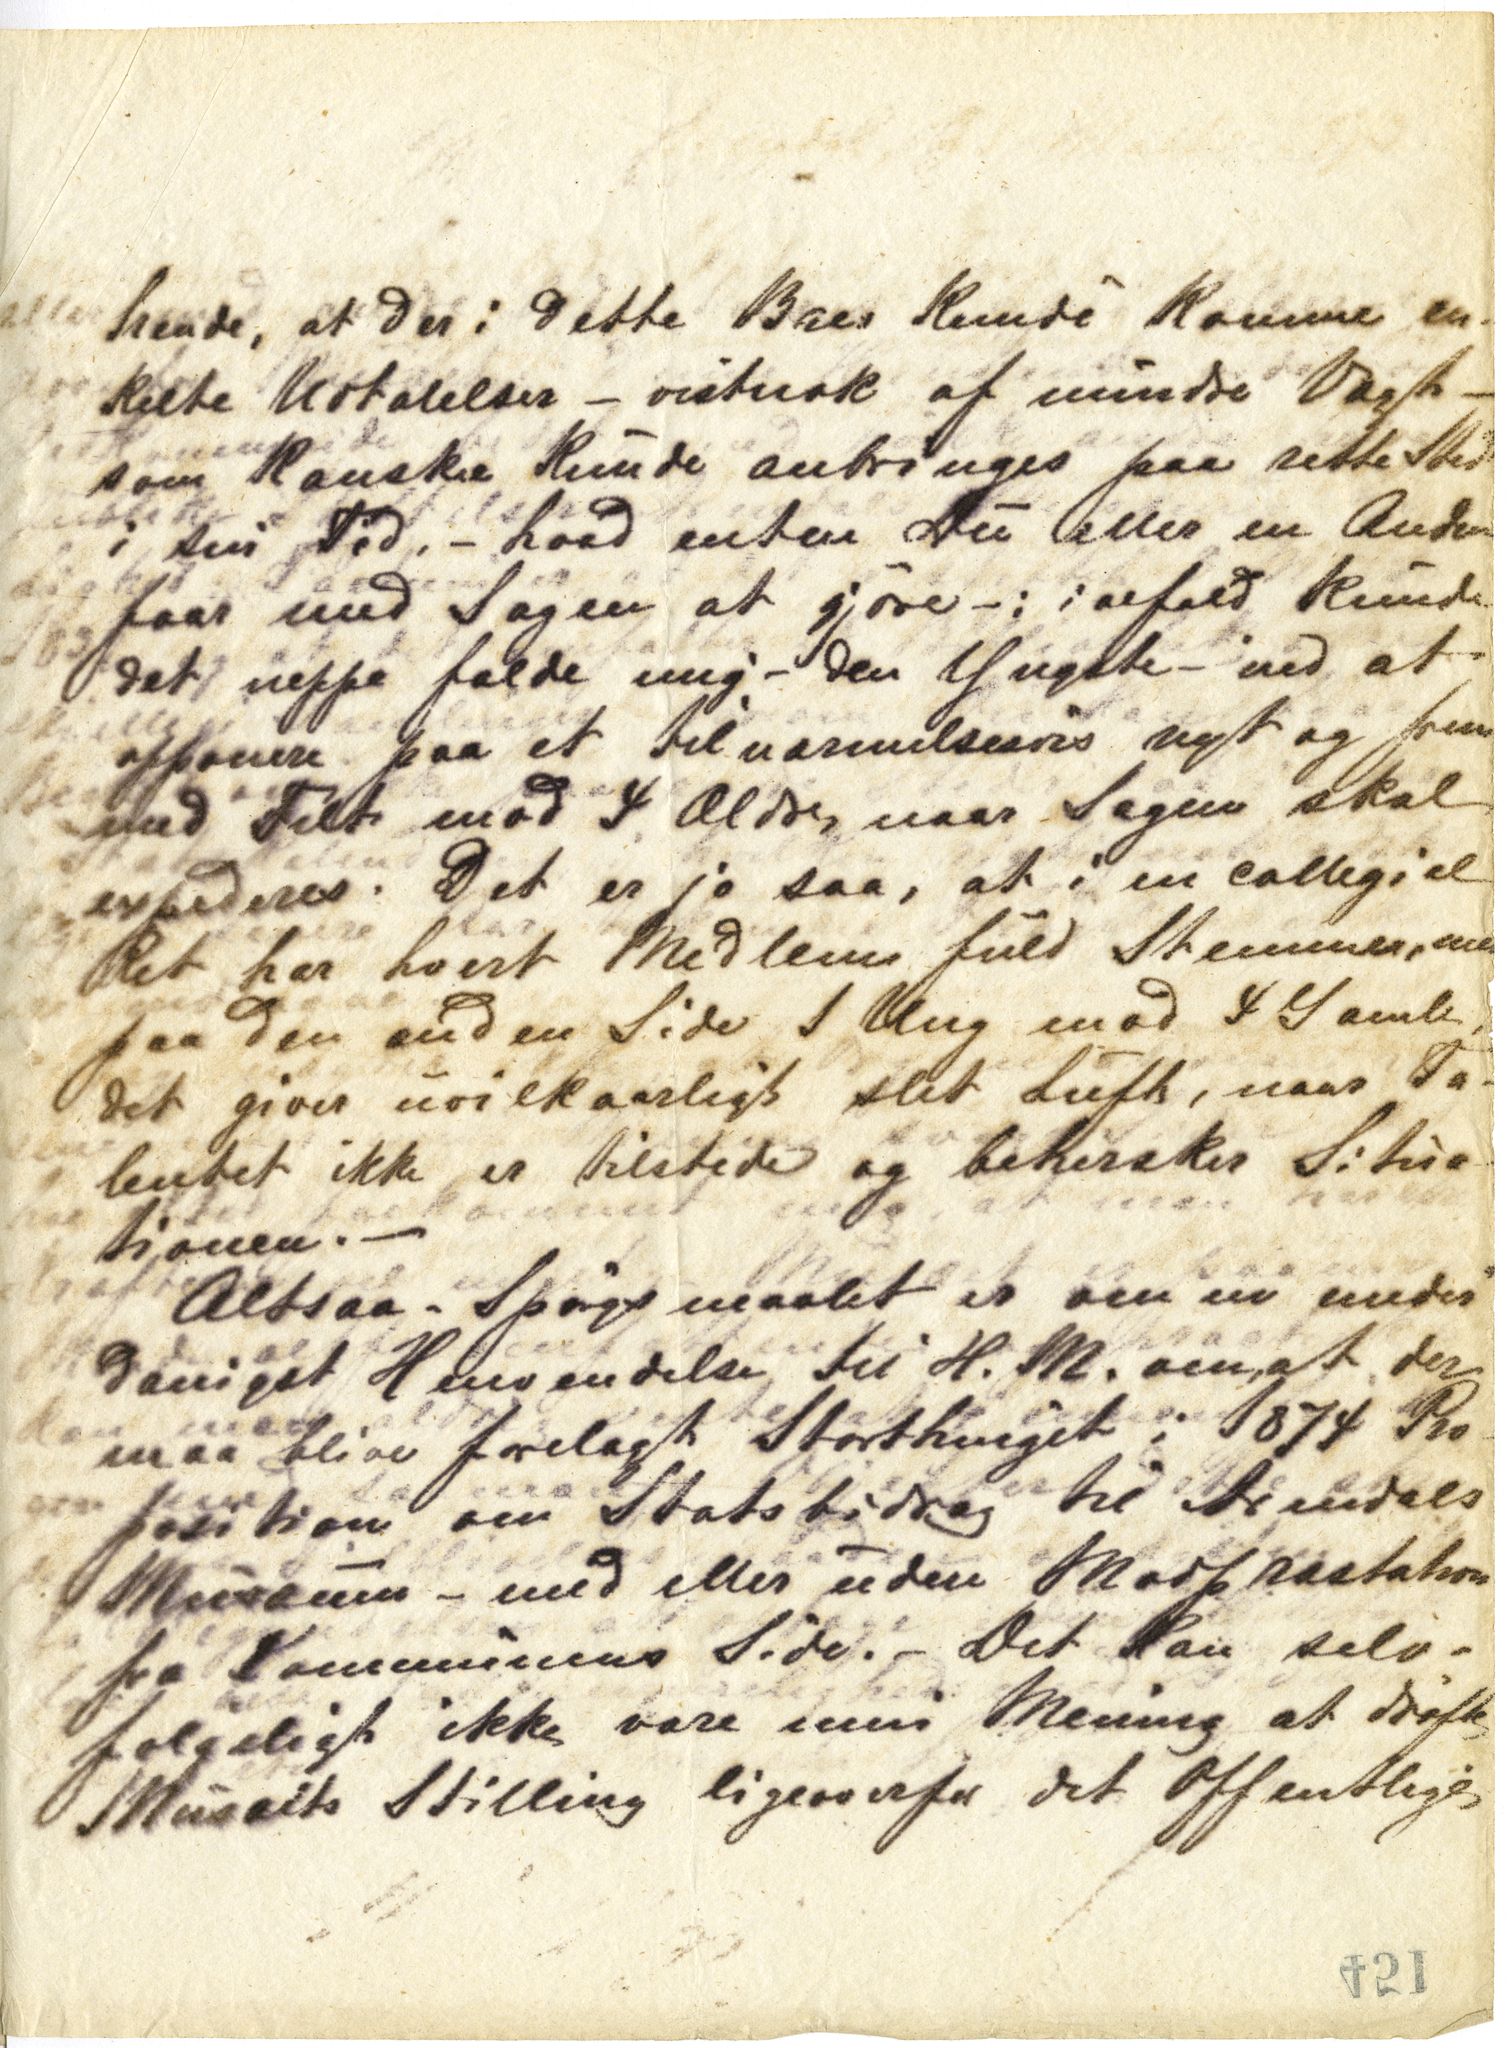 hende, at der i dette Brev kunde komme en-
kelte Udtalelser – vistnok af mindre Vægt –
som kanskee kunde anbringes paa rette Sted
i sin Tid, – hvad enten Du eller en Anden
faar med Sagen at gjöre –; ialfald kunde
det neppe falde mig – den Yngste – ind at
opponere paa et tilnærmelsesvis nyt og frem-
med Felt mod 4 Ældre, naar Sagen skal
expederes. Det er jo saa, at i en collegial
Ret har hvert Medlem fuld Stemme, men
paa den anden Side 1 Ung mod 4 Gamle,
det giver uvilkaarligt slet Luft, naar Ta-
lentet ikke er tilstede og behersker Situa-
tionen. –
Altsaa – Spörgsmaalet er om en under
danigst Henvendelse til H. M. om, at der
maa blive forelagt Storthinget i 1874 Pro-
position om Statsbidrag til Arendals
Musæum – med eller uden Modpræstation
fra Kommunens Side. – Det kan selv-
følgeligt ikke være min Mening at dröfte
Musæets Stilling ligeoverfor det Offentlige,
451